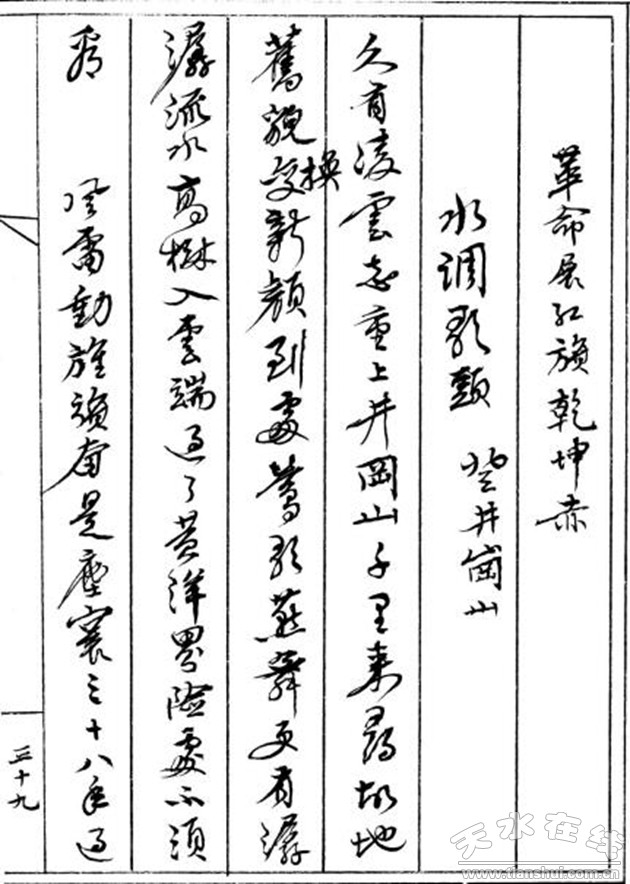 革命展红旗乾坤赤
水调歌頭 登井崗山
久有凌雲志重上井岡山千里来尋故地
舊貌变换新顔到處鶯歌燕舞更有潺
潺流水高樹入雲端过了黄洋界險處不須
看 风雷動旌旗奋是塵寰三十八年过
三十九
天水在线
www.tianshui.com.cn